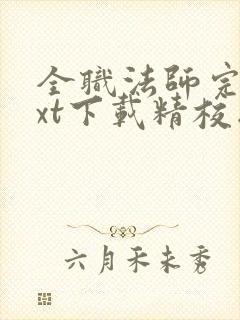 全職法師完
xt下載精校
六月禾未秀